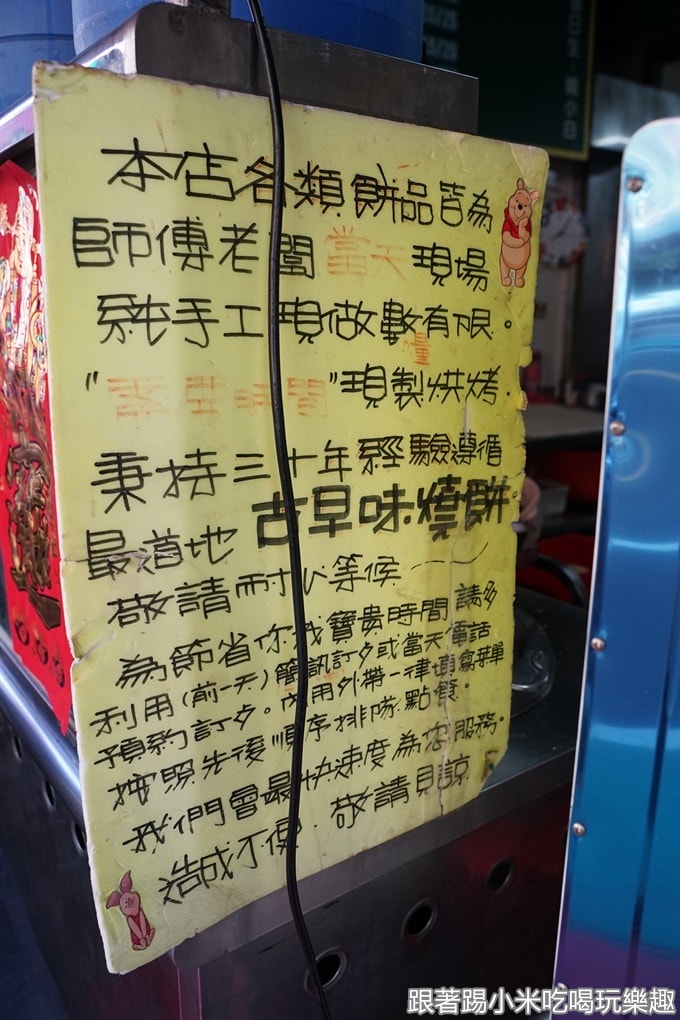 本店各類餅品皆為
師傅老闆當天現場
純手工現做數有限。
量
"      時間"現製烘烤.
秉持三十年經驗遵循
最道地 古早味燒餅。
敬請耐心等候
為節省你我寶貴時間 請多
利用(前一天)簡訊訂夕或當天電話
預約訂夕。內用外帶一律填寫菜單
按照先後順序排隊點餐。
我們會最快速度為您服務。
造成不便.敬請見諒
跟著踢小米吃喝玩樂趣